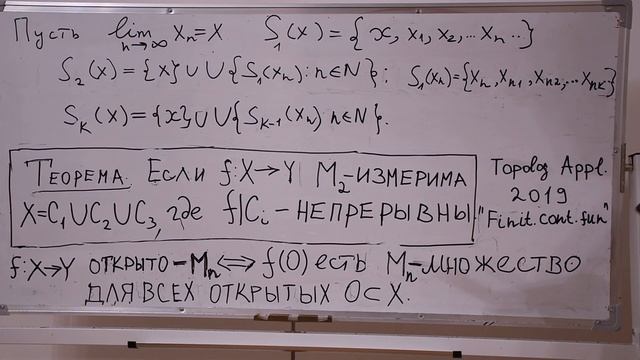 Пусть lim n→∞ Xn = X S1(x) = {x, x1, x2, ... xn ..}
S2(x) = {x} ∪ ∪{S1(xn): n∈N}; S1(xn) = {xn, xn1, xn2, ... xnk..}
Sk(x) = {x} ∪ ∪{Sk-1(xn) n∈N}.
ТЕОРЕМА. Если f: X→Y M2-ИЗМЕРИМА
X=C1∪C2∪C3, где f|Ci - НЕПРЕРЫВНЫ
Topolog Appl.
2019
"Finit. cont. fun"
f: X→Y ОТКРЫТО-Mn ⟺ f(O) есть Mn-МНОЖЕСТВО
ДЛЯ ВСЕХ ОТКРЫТЫХ O⊂X.